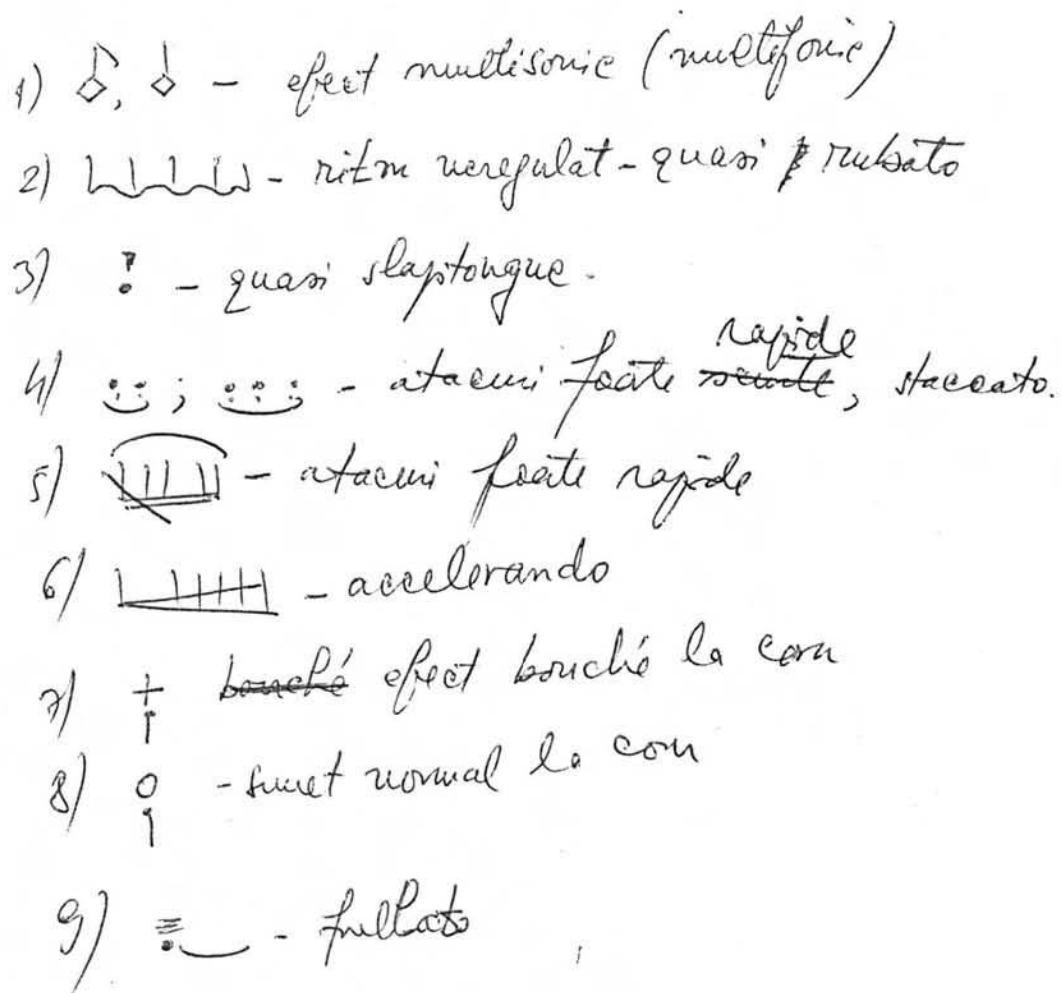 1) , - efect multisonic (multifonic)
2) - ritm neregulat - quasi rubato
3) - quasi slaptongue.
4) ; - atacuri foarte scurte rapide, staccato.
5) - atacuri foarte rapide
6) - accelerando
7) + bouché efect bouché la corn
8) - sunet normal la corn
9) - frullato